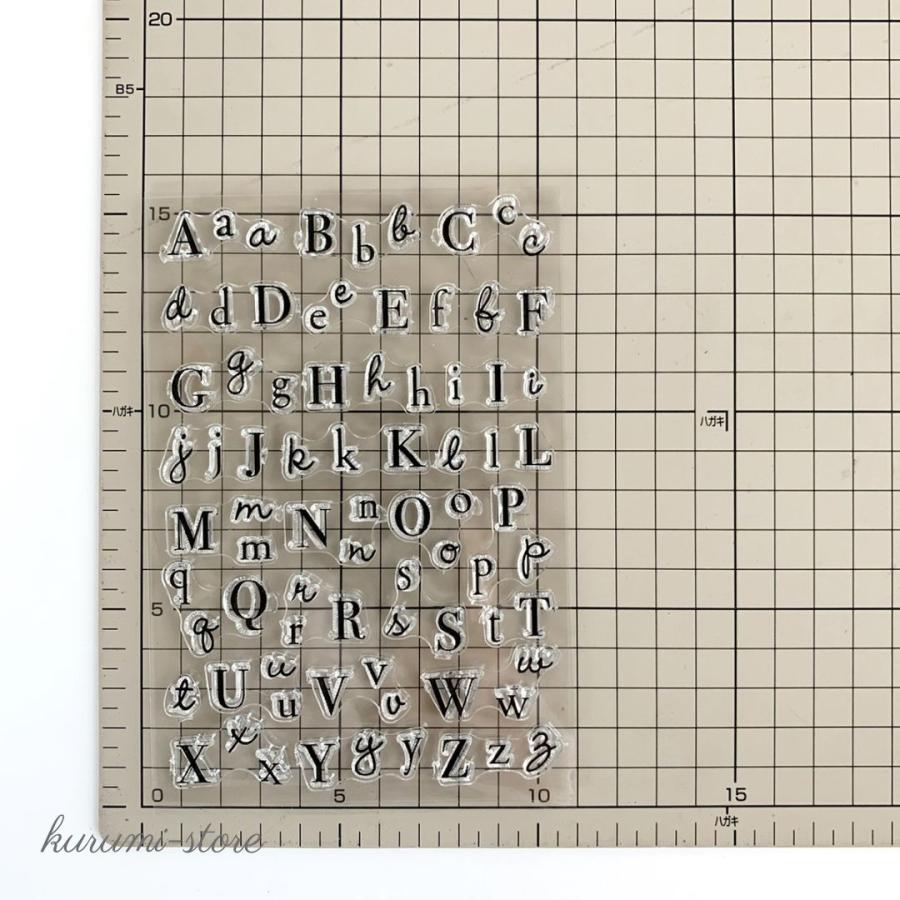 20
B5
15
A a a B b b C c c
d d D e e E f f F
G g g H h h i I i
ハガキ 10 ハガキ
j j J k k K l l L
M m m N n n O o o P
q q Q r r R s s S p p t T
5
t U u u V v v W w w
X x x Y y y Z z z
0 5 10 15
ハガキ
kurumi-store